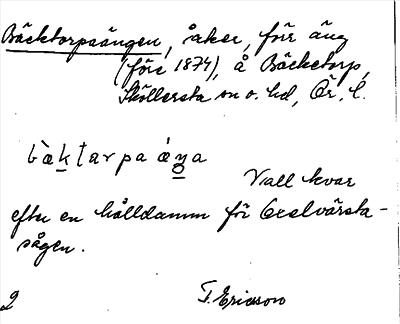 Bäcktorpsängen, åker, förr äng
(före 1874), å Bäcketorp,
Sköllersta sn o. hd, Ör. l.
bäktarpa äŋa
Vall kvar
efter en hålldamm för Exelvärsta-
sågen.
2 T. Ericsson